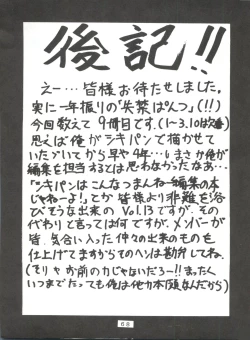 後記!!
えー…皆様お待たせしました。
実に一年振りの「失禁ぱんつ」(!!)
今回数えて9冊目です。(1〜3.10は欠番)
思えば俺がシキパンで描かせて
いただいてから早や4年…しまさか俺が
編集を担当するとは思わなかったなあ…
「シキパンはこんなつまんねー編集の本
じゃねーよ!」とか皆様より非難を浴
びそうな出来の Vol.13ですが、その
代わりと言っては何ですが、メンバーが
皆、気合い入った仲々の出来のものを
仕上げてますからそのへんは勘弁してね。
(そりゃお前の力じゃないだろー!!まったく
いつまでたっても俺は他力本願なんだから)
68